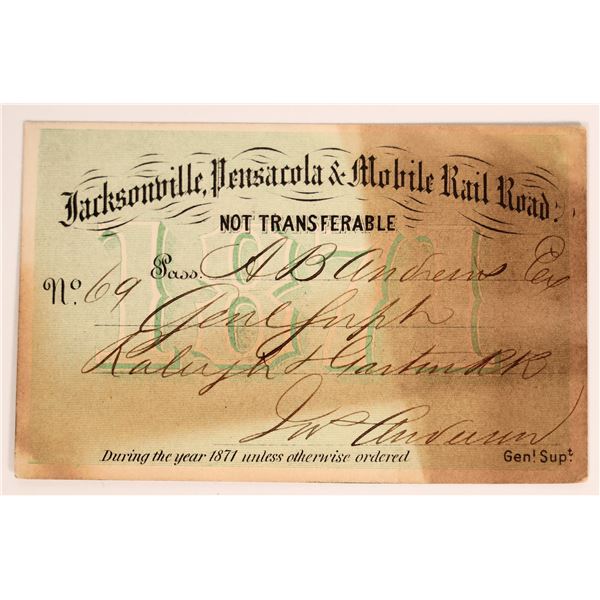 Jacksonville, Pensacola & Mobile Rail Road.
NOT TRANSFERABLE
1871
No. 69 Pass. A B Andrews Esq
Genl Supt
Raleigh & Gaston RR
Jno Anderson
During the year 1871 unless otherwise ordered Genl. Supt.